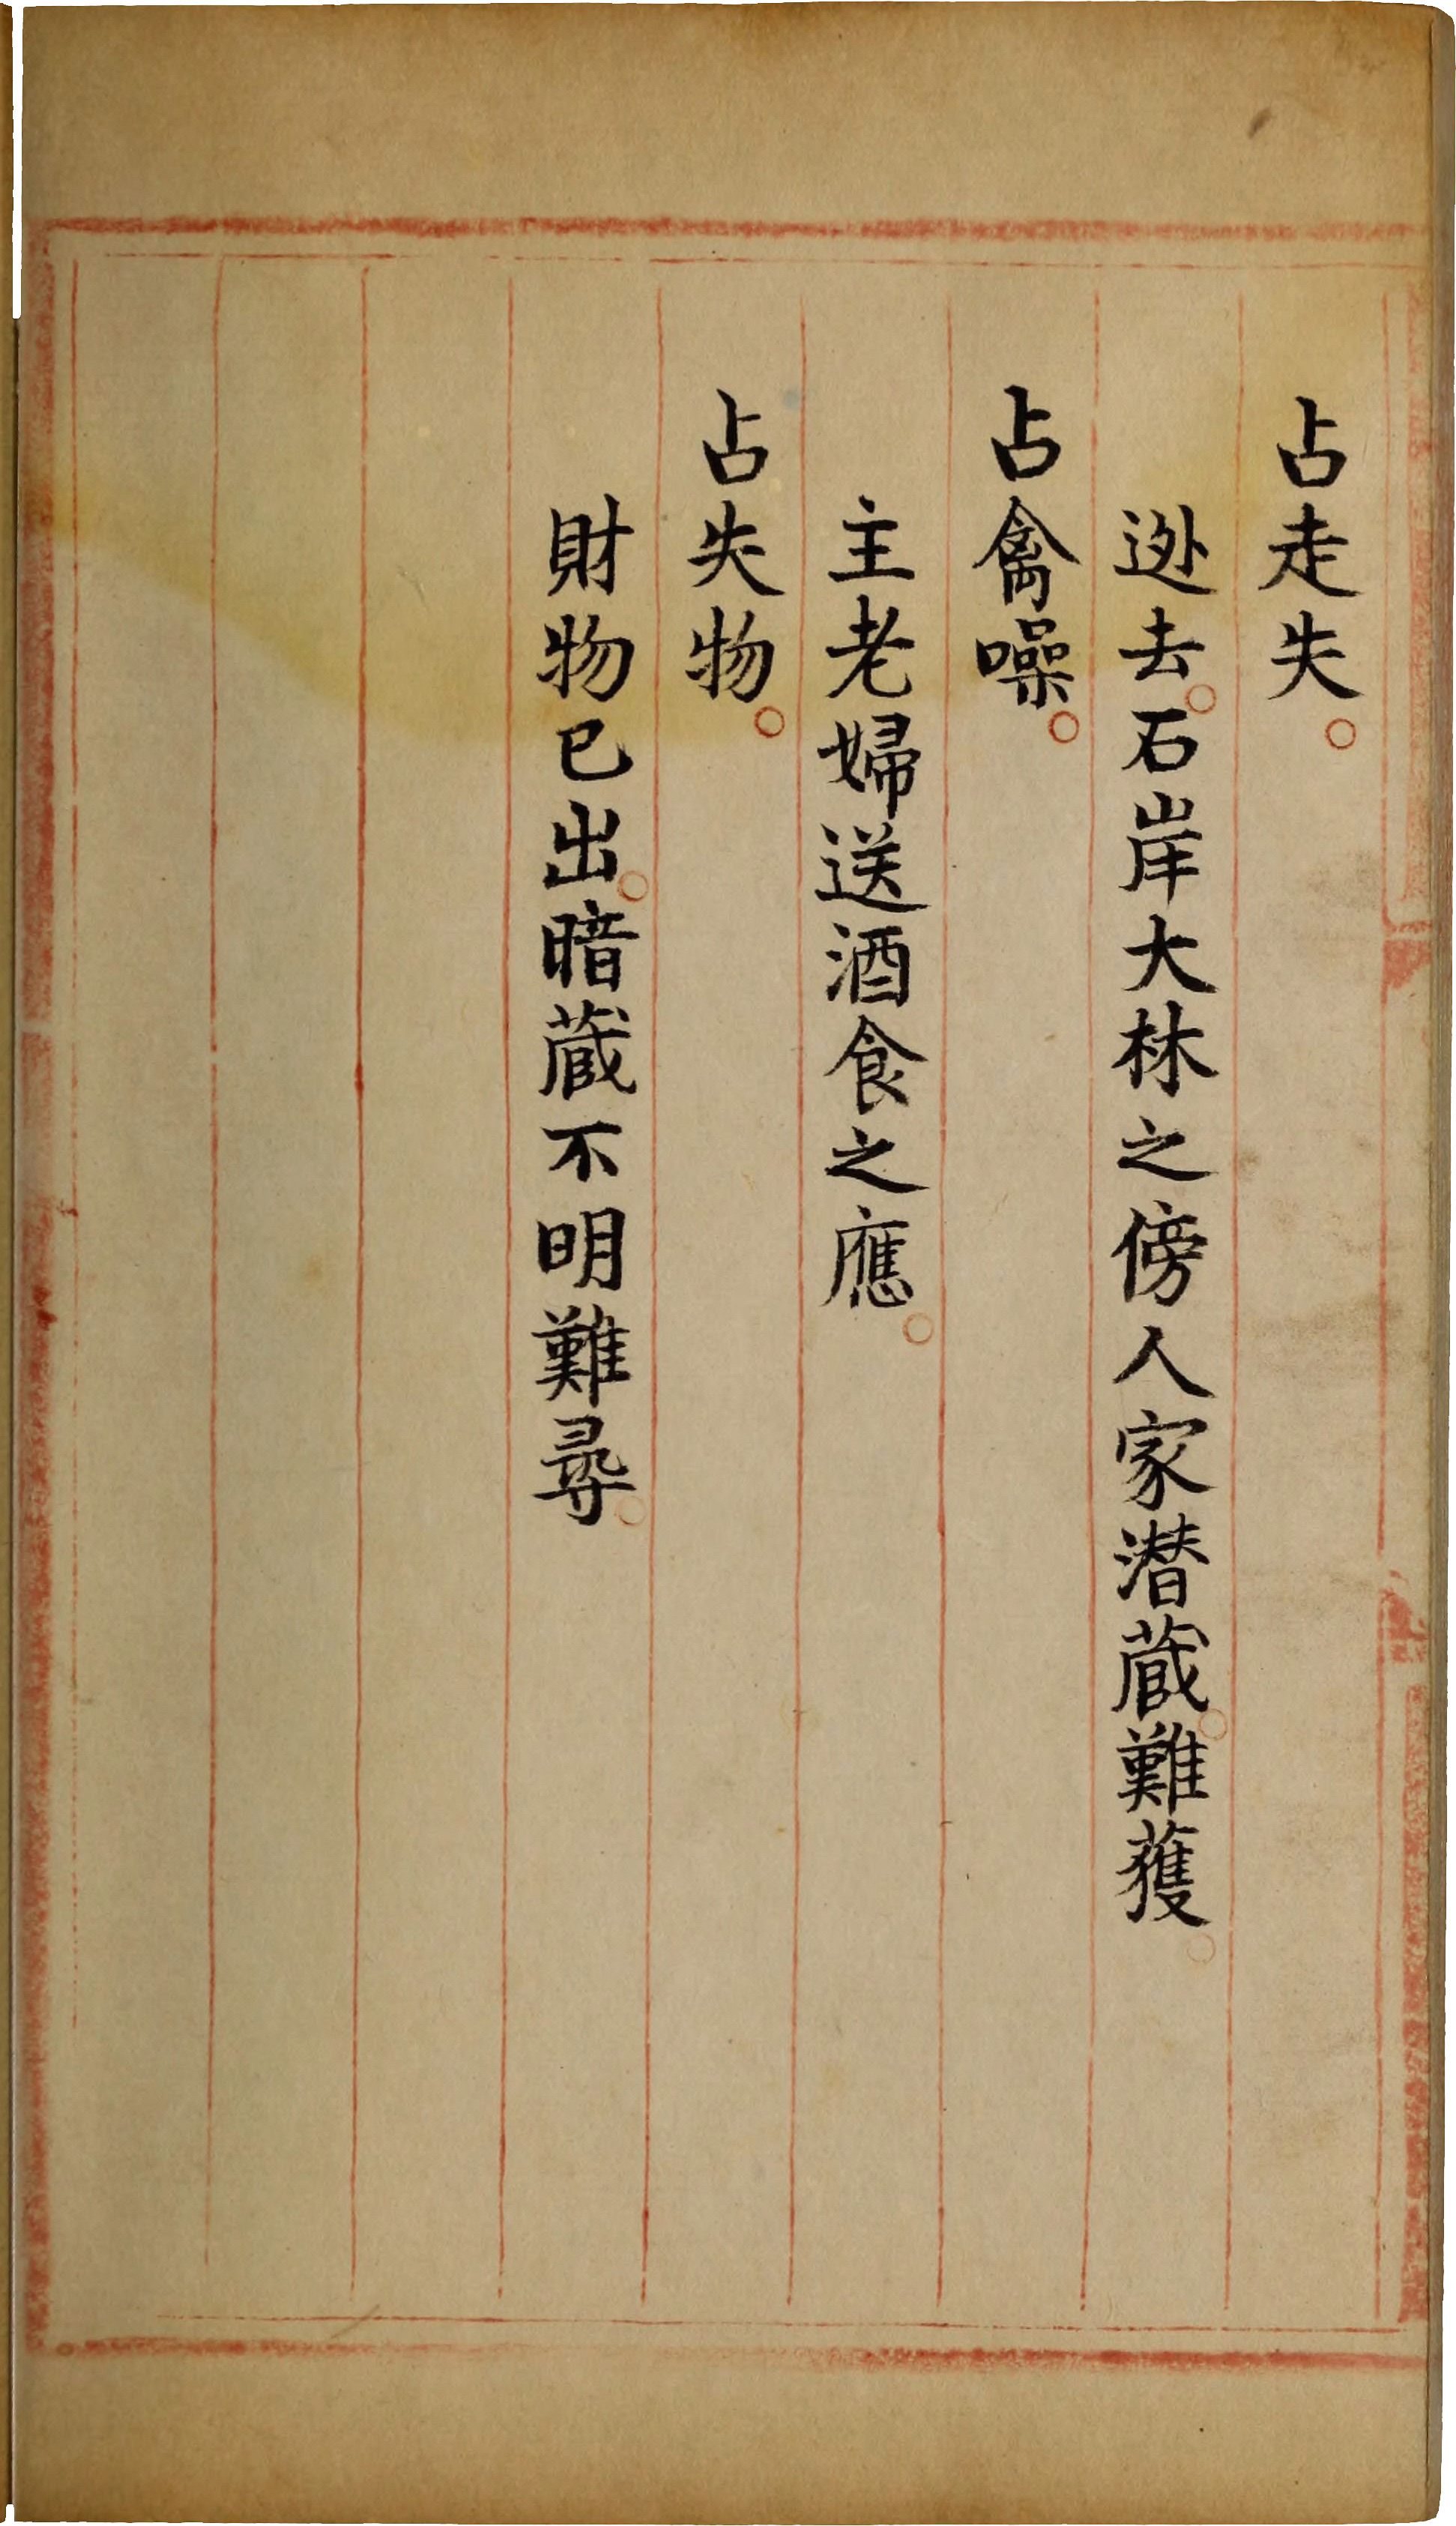 占走失。
迯去。石岸大林之傍人家潜蔵。難獲。
占禽噪。
主老婦送酒食之應。
占失物。
財物已出。暗蔵不明難尋。